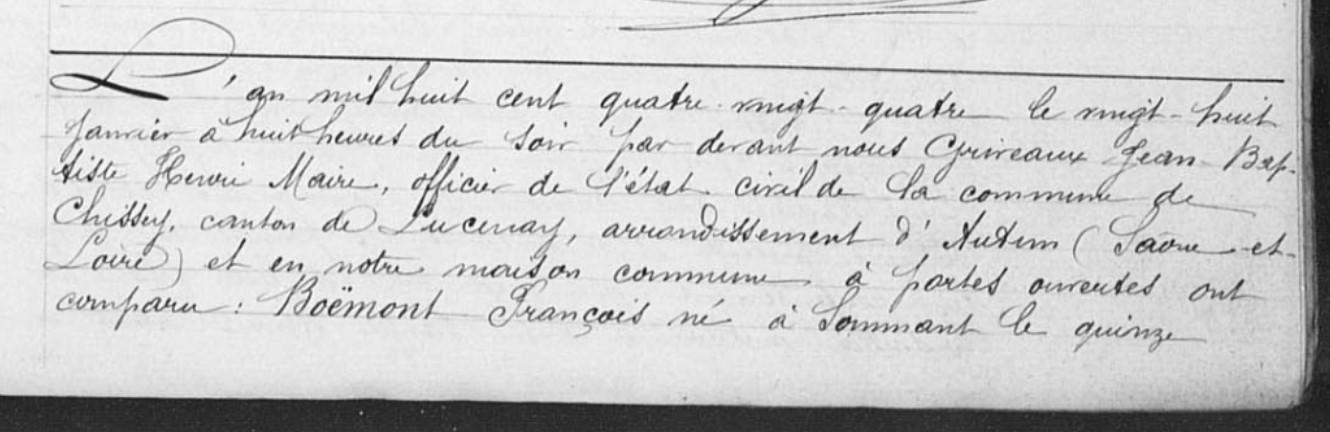 L'an mil huit cent quatre-vingt-quatre le vingt-huit
Janvier à huit heures du soir par devant nous Griveaux Jean-Bap-
tiste Henri Maire, officier de l'état civil de la commune de
Chissey, canton de Lucenay, arrondissement d'Autun (Saône-et-
Loire) et en notre maison commune à portes ouvertes ont
comparu : Boëmont François né à Sommant le quinze